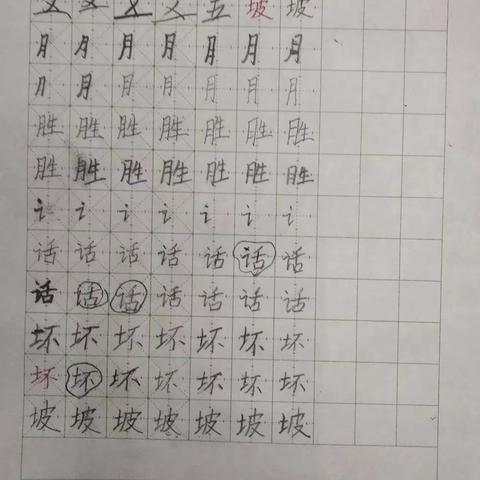 五 坡 坡
月 月 月 月 月 月 月
月 月 月 月 月 月 月
胜 胜 胜 胜 胜 胜 胜
胜 胜 胜 胜 胜 胜 胜
讠 讠 讠 讠 讠 讠 讠
话 话 话 话 话 话 话
话 话 话 话 话 话 话
坏 坏 坏 坏 坏 坏 坏
坏 坏 坏 坏 坏 坏 坏
坡 坡 坡 坡 坡 坡 坡